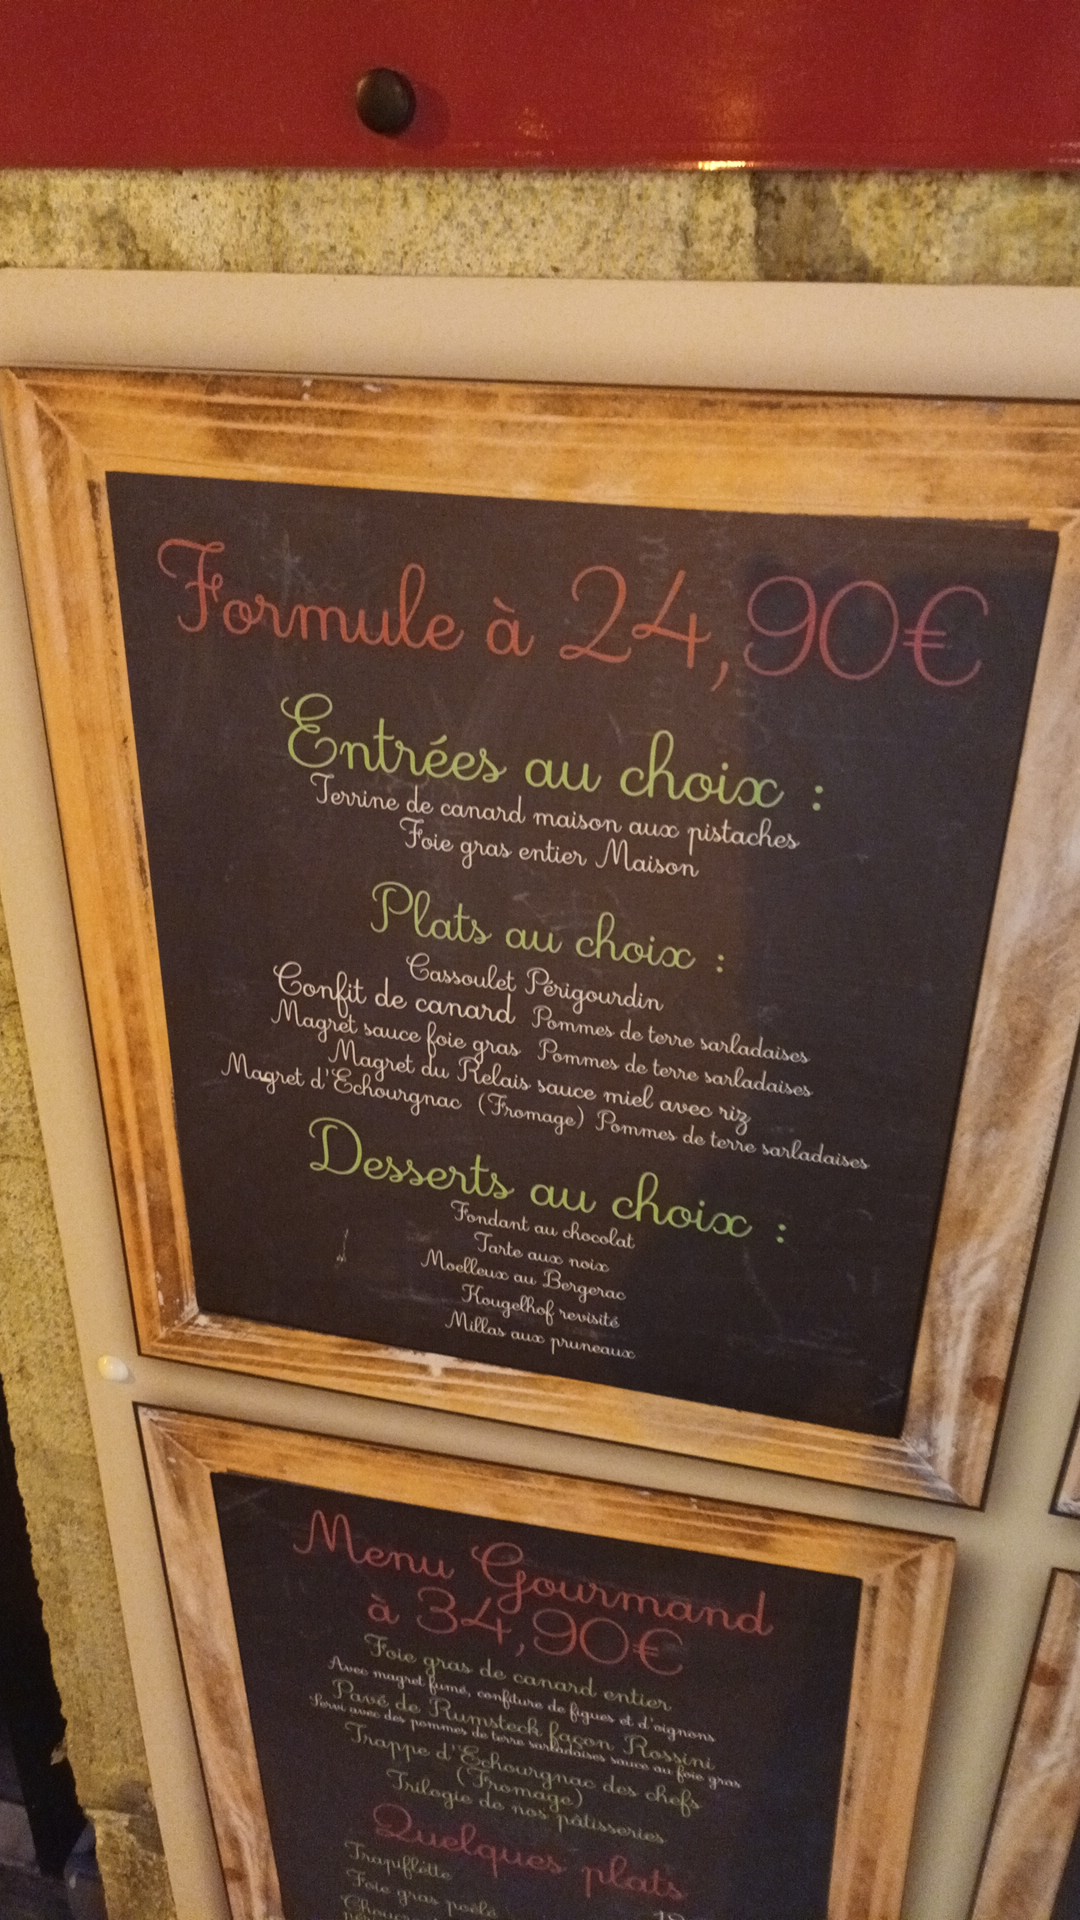 Formule à 24,90€
Entrées au choix :
Terrine de canard maison aux pistaches
Foie gras entier Maison
Plats au choix :
Cassoulet Périgourdin
Confit de canard Pommes de terre sarladaises
Magret sauce foie gras Pommes de terre sarladaises
Magret du Relais sauce miel avec riz
Magret d'Echourgnac (Fromage) Pommes de terre sarladaises
Desserts au choix :
Fondant au chocolat
Tarte aux noix
Moelleux au Bergerac
Kougelhof revisité
Millas aux pruneaux
Menu Gourmand
à 34,90€
Foie gras de canard entier
Avec magret fumé, confiture de figues et d'oignons
Pavé de Rumsteck façon Rossini
Servi avec des pommes de terre sarladaises sauce au foie gras
Trappe d'Echourgnac des chefs
(Fromage)
Trilogie de nos pâtisseries
Quelques plats
Trapiflette
Foie gras poêlé